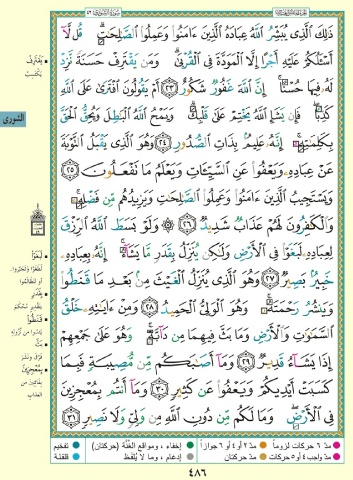 ذَٰلِكَ ٱلَّذِى يُبَشِّرُ ٱللَّهُ عِبَادَهُ ٱلَّذِينَ ءَامَنُوا۟ وَعَمِلُوا۟ ٱلصَّٰلِحَٰتِ ۗ قُل لَّآ
أَسْـَٔلُكُمْ عَلَيْهِ أَجْرًا إِلَّا ٱلْمَوَدَّةَ فِى ٱلْقُرْبَىٰ ۗ وَمَن يَقْتَرِفْ حَسَنَةً نَّزِدْ
لَهُۥ فِيهَا حُسْنًا ۚ إِنَّ ٱللَّهَ غَفُورٌ شَكُورٌ ٢٣ أَمْ يَقُولُونَ ٱفْتَرَىٰ عَلَى ٱللَّهِ
كَذِبًا ۖ فَإِن يَشَإِ ٱللَّهُ يَخْتِمْ عَلَىٰ قَلْبِكَ ۗ وَيَمْحُ ٱللَّهُ ٱلْبَٰطِلَ وَيُحِقُّ ٱلْحَقَّ
بِكَلِمَٰتِهِۦٓ ۚ إِنَّهُۥ عَلِيمٌۢ بِذَاتِ ٱلصُّدُورِ ٢٤ وَهُوَ ٱلَّذِى يَقْبَلُ ٱلتَّوْبَةَ
عَنْ عِبَادِهِۦ وَيَعْفُوا۟ عَنِ ٱلسَّيِّـَٔاتِ وَيَعْلَمُ مَا تَفْعَلُونَ ٢٥
وَيَسْتَجِيبُ ٱلَّذِينَ ءَامَنُوا۟ وَعَمِلُوا۟ ٱلصَّٰلِحَٰتِ وَيَزِيدُهُم مِّن فَضْلِهِۦ ۚ
وَٱلْكَٰفِرُونَ لَهُمْ عَذَابٌ شَدِيدٌ ٢٦ وَلَوْ بَسَطَ ٱللَّهُ ٱلرِّزْقَ
لِعِبَادِهِۦ لَبَغَوْا۟ فِى ٱلْأَرْضِ وَلَٰكِن يُنَزِّلُ بِقَدَرٍ مَّا يَشَآءُ ۚ إِنَّهُۥ بِعِبَادِهِۦ
خَبِيرٌۢ بَصِيرٌ ٢٧ وَهُوَ ٱلَّذِى يُنَزِّلُ ٱلْغَيْثَ مِنۢ بَعْدِ مَا قَنَطُوا۟
وَيَنشُرُ رَحْمَتَهُۥ ۚ وَهُوَ ٱلْوَلِىُّ ٱلْحَمِيدُ ٢٨ وَمِنْ ءَايَٰتِهِۦ خَلْقُ
ٱلسَّمَٰوَٰتِ وَٱلْأَرْضِ وَمَا بَثَّ فِيهِمَا مِن دَآبَّةٍ ۚ وَهُوَ عَلَىٰ جَمْعِهِمْ
إِذَا يَشَآءُ قَدِيرٌ ٢٩ وَمَآ أَصَٰبَكُم مِّن مُّصِيبَةٍ فَبِمَا
كَسَبَتْ أَيْدِيكُمْ وَيَعْفُوا۟ عَن كَثِيرٍ ٣٠ وَمَآ أَنتُم بِمُعْجِزِينَ
فِى ٱلْأَرْضِ ۖ وَمَا لَكُم مِّن دُونِ ٱللَّهِ مِن وَلِىٍّ وَلَا نَصِيرٍ ٣١
يَقْتَرِفْ
يَكْتَسِبْ
الشورى
لَبَغَوْا
بِقَدَرٍ
قَنَطُوا
بَثَّ
بِمُعْجِزِينَ
مدّ ٦ حركات لزوماً
مدّ ٢ أو ٤ أو ٦ جوازاً
إخفاء، ومواقع الغُنَّة (حركتان)
تفخيم
مدّ واجب ٤ أو ٥ حركات
مدّ حركتان
إدغام، وما لا يُلفَظ
قلقلة
٤٨٦